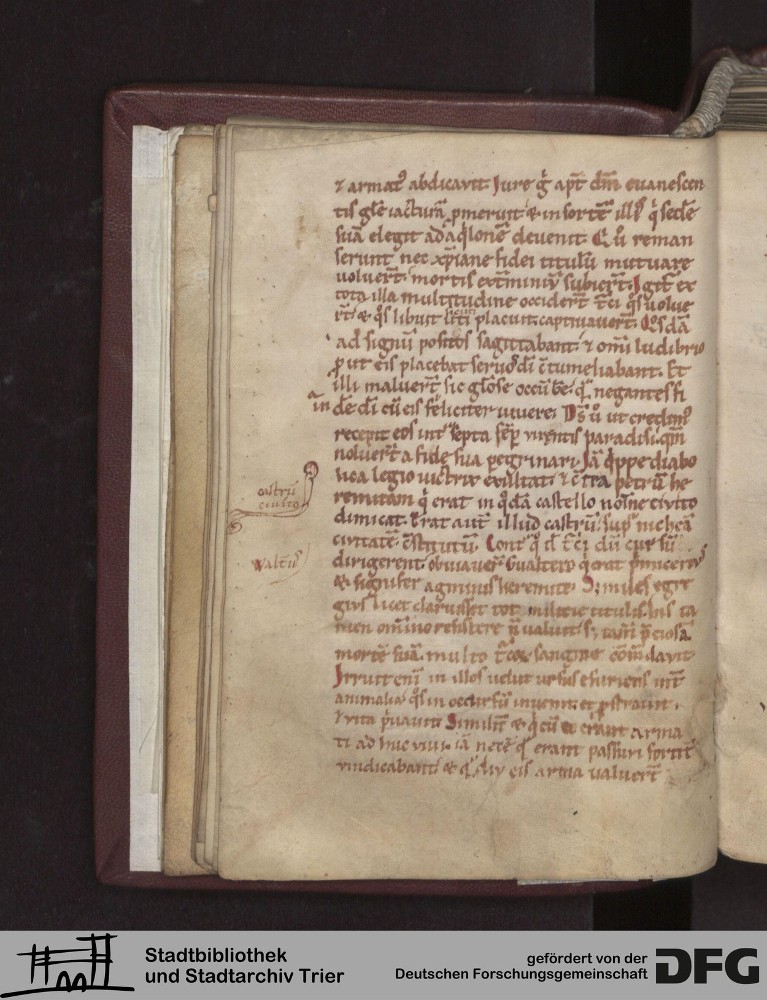 ⁊ armatꝰ abdicavit. Iure g̃ apd̃ dm̃ evanescen
tis glẽ iacturã ꝓmerunt ⁊ in sortẽ
suã elegit ad aq̓lonẽ devenit. Q̃ ũ reman
serunt nec xp̃iane fidei titulũ mutuare
voluert̃. mortis subiert̃. Igit̃ ex
tota illa multitudine occidert̃ q̃s volue
rt̃. ⁊ q̃s libuit placuit captivavert̃. Q̃sdã
ad signũ positos sagittabant. ⁊ om̃i ludibrio
ꝓut eis placebat servos dĩ c̃tumeliabant. Et
illi maluert̃ sic gl̃ose occũbe. q̃ negantes fi
dẽ dĩ cũ eis feliciter vivere. Ds̃ ũ ut credimꝰ
recepit eos int̃ septa sẽp paradisi. qm̃
noluert̃ a fide sua pegrinari. Iã q̃ppe diabo
lica legio victrix exultat. ⁊ c̃tra petrũ he
remitam q̓ erat in q̓dã castello noĩne civito
dimicat. Erat aut̃ illud castrũ. sup̃ nicheã
civitatẽ c̃stitutũ. q̃ dũ cur sũ
dirigerent obviaver̃ Gualterꝰ q̓ erat
⁊ signifer agminis heremite. miles egre
giꝰ licet claruisset tot milicie titulis. his ta
men om̃ino resistere ñ valuit. sꝫ p̃ciosã
mortẽ suã. multo sanguine cõm̃davit
Irruit enĩ in illos velut ursus esuriens int̃
animalia. q̃s in occursũ invenit et pstravit.
⁊ vita p̃vavit. Similit̃ ⁊ q̓ cũ eo erant arma
ti ad huc vivi. iã necẽ q̃ erant passuri fortit̃
vindicabant. ⁊ eis arma valuert̃
castrũ
civito
Walt̃iꝰ
Stadtbibliothek
und Stadtarchiv Trier
gefördert von der
Deutschen Forschungsgemeinschaft
DFG